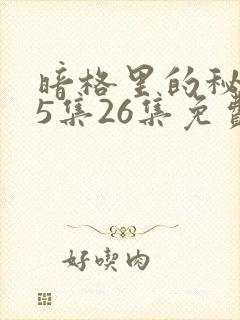 暗格里的秘
5集26集免费
好喫肉